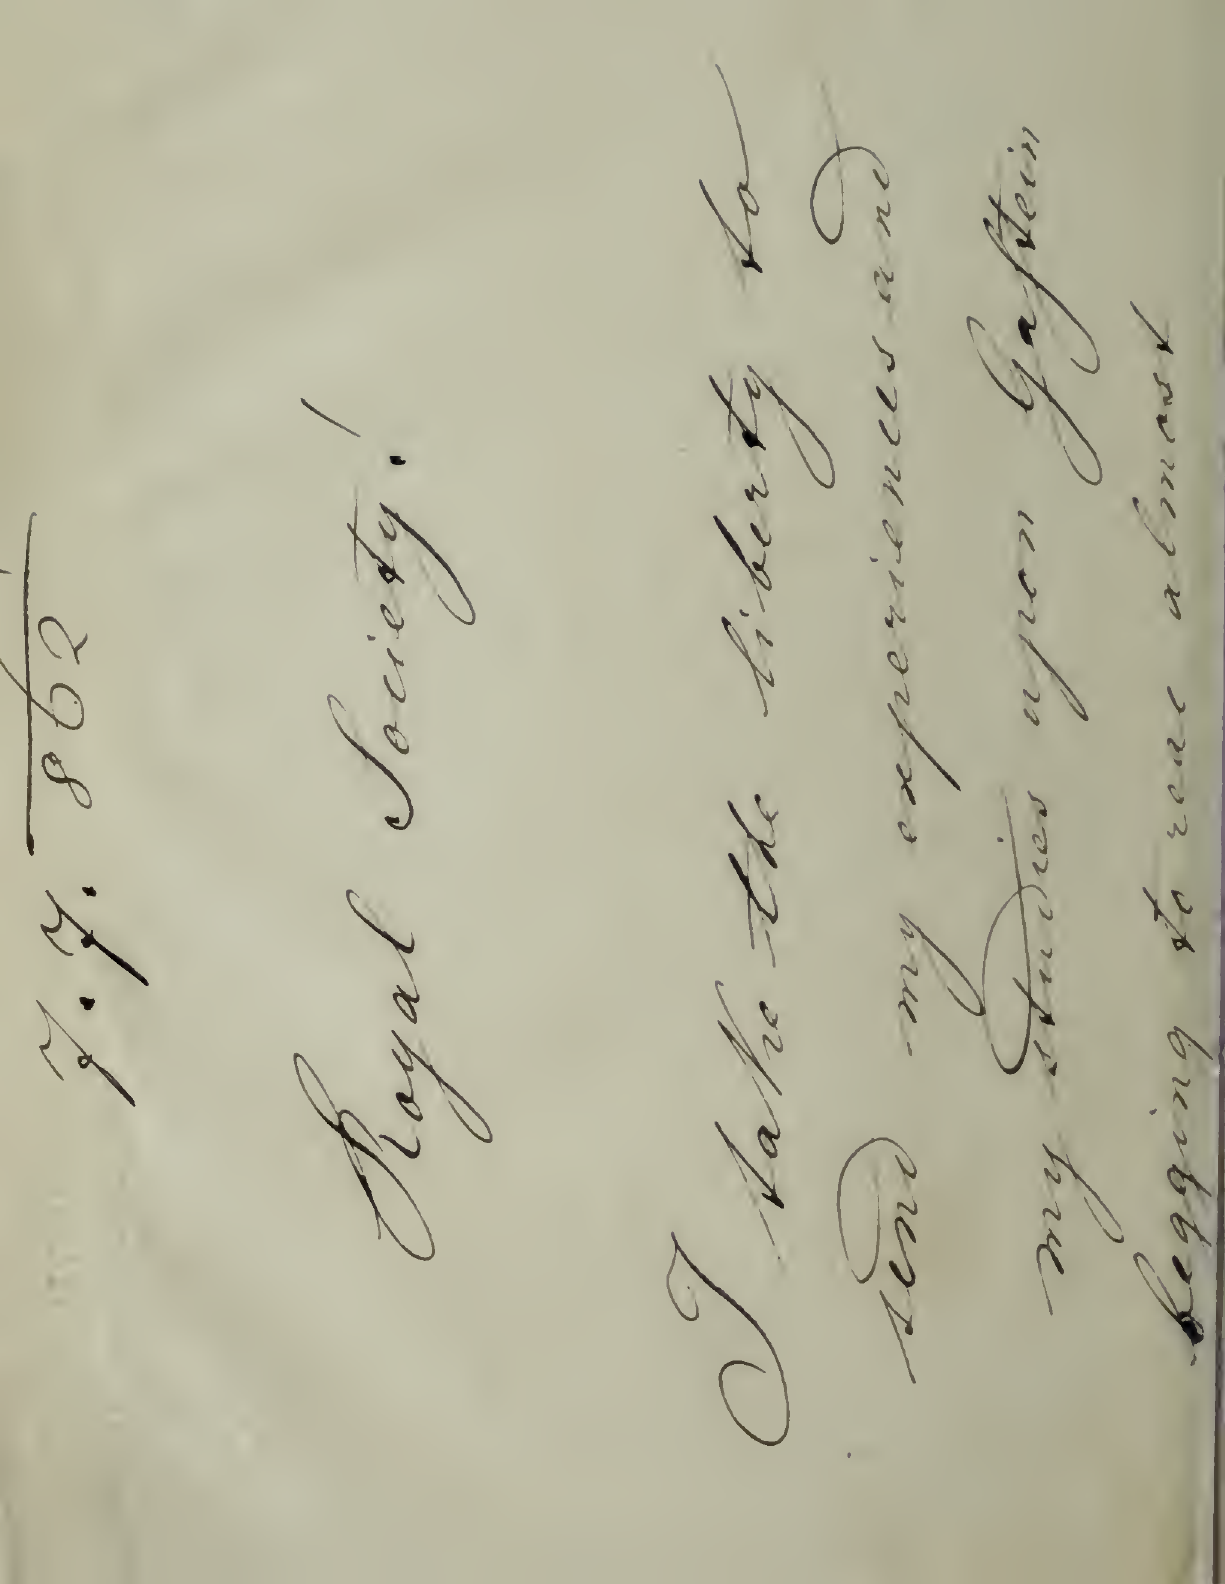 7.7. 862
Royal Society!
I take the liberty to
send my experiences and
my studies upon Gastein
begging to
almost